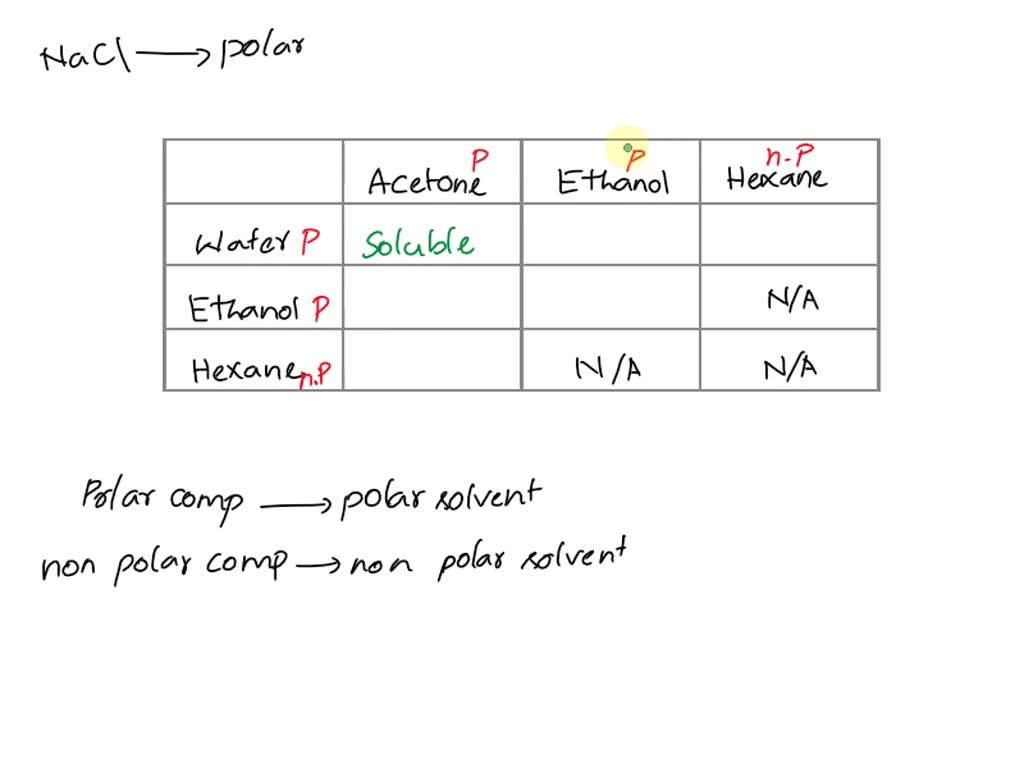 NaCl → polar
P P n-P
Acetone Ethanol Hexane
Water P Soluble
Ethanol P N/A
Hexane n.P N/A N/A
Polar comp → polar solvent
non polar comp → non polar solvent